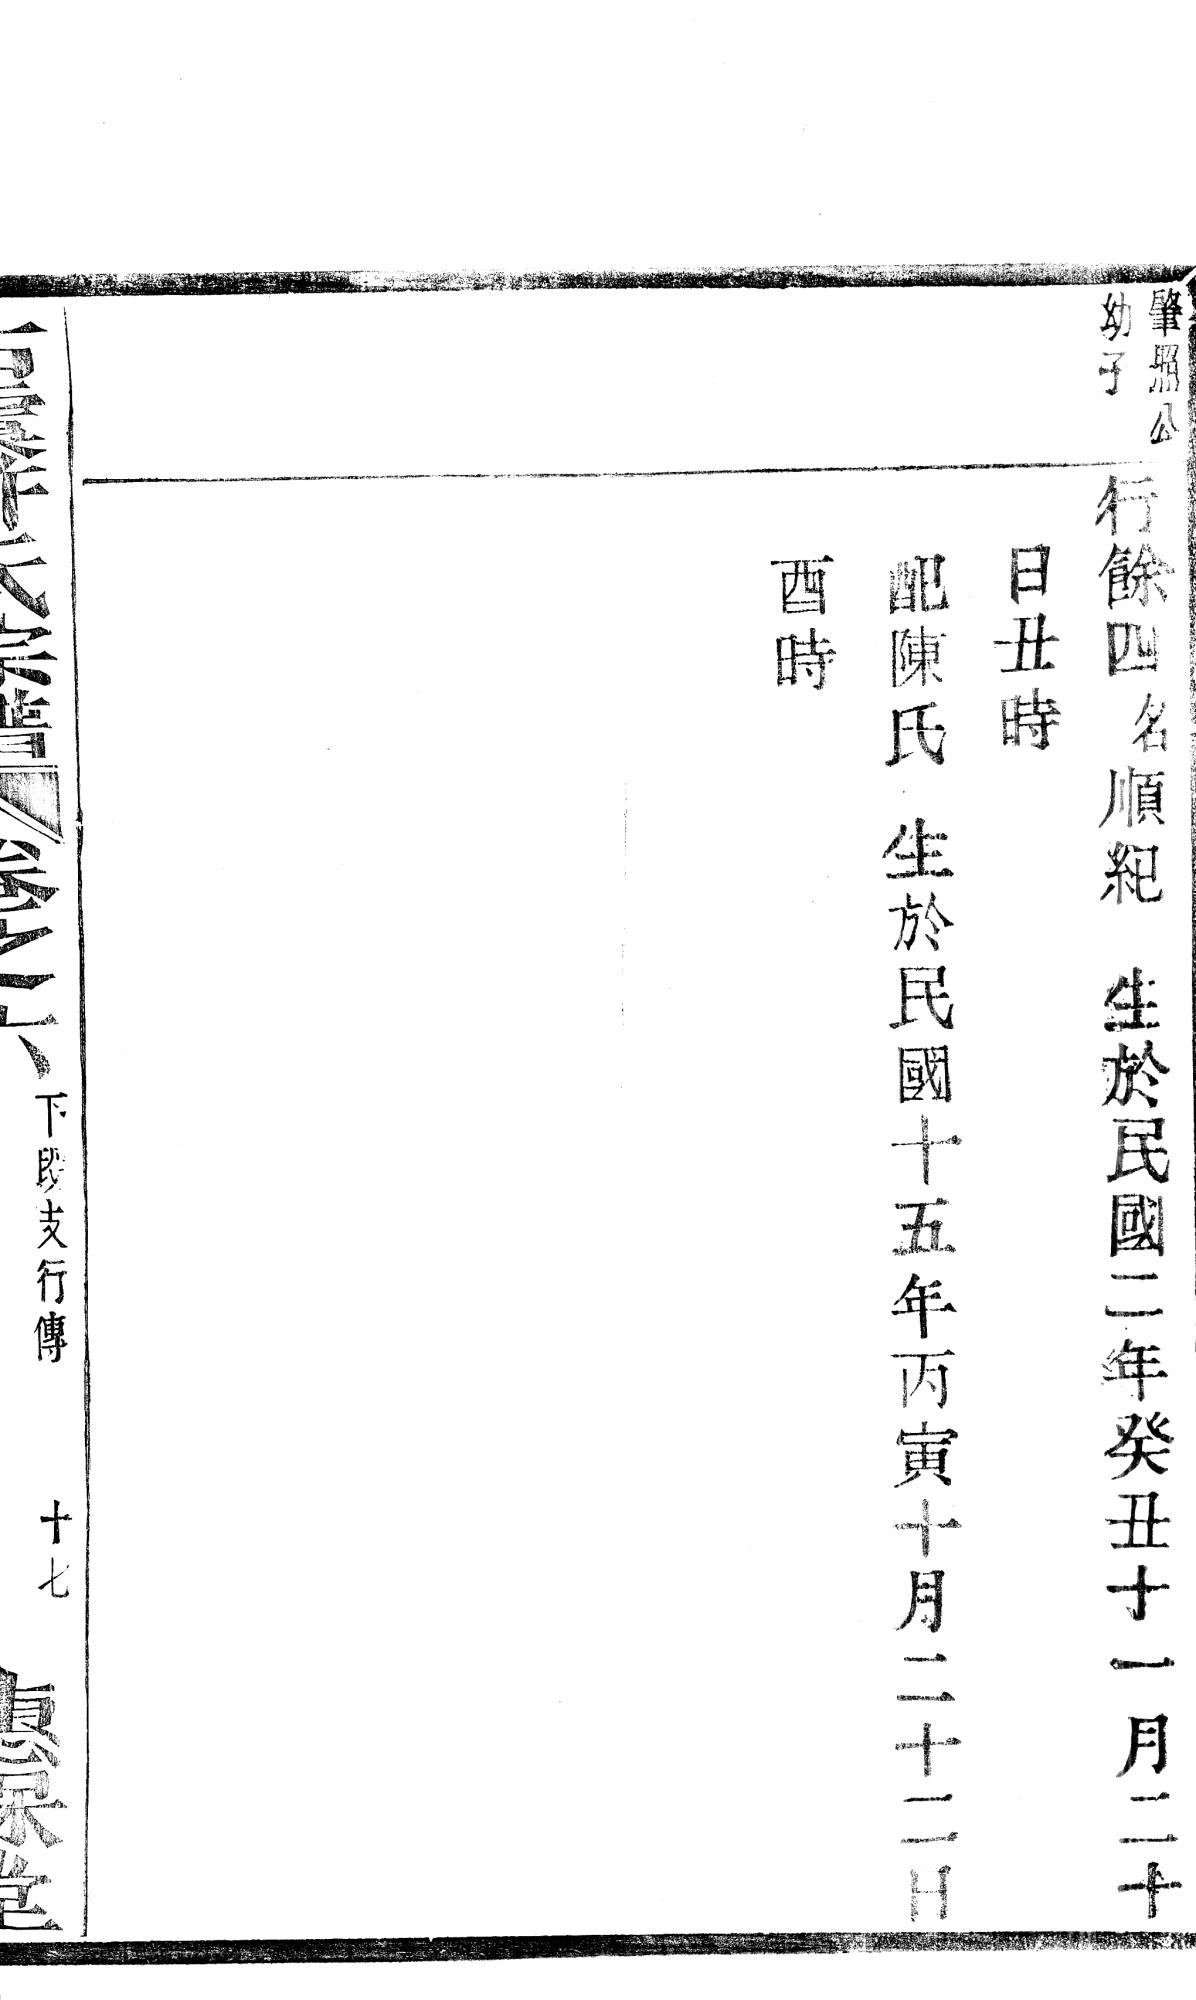 肇照公
幼子
行餘四名順紀 生於民國二年癸丑十一月二十
日丑時
配陳氏 生於民國十五年丙寅十月二十二日
酉時
氏宗譜 卷之六 下段支行傳 十七 堂